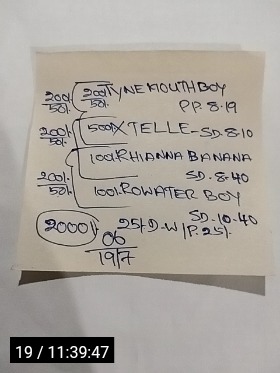 200/. 200/. TYNEMOUTHBOY
50/. 50/. P.P. 8.19
200/. 500/. XTELLE - SD. 8-10
50/.
100/. RHIANNA BANANA
200/. SD. 8-40
50/. 100/. ROWATER BOY
SD. 10-40
2000/. 25/. D-W/P. 25/.
06
19/7
19 / 11:39:47